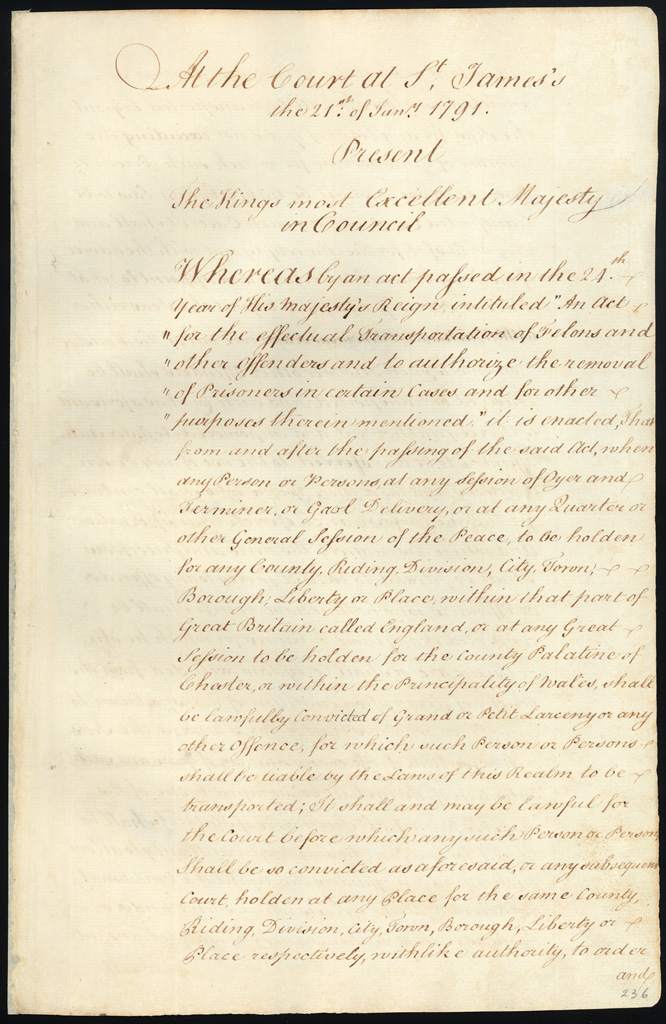 At the Court at St. James's
the 21st. of Jany. 1791.
Present
The Kings most Excellent Majesty
in Council
Whereas by an act passed in the 24.th
Year of His Majesty's Reign, intituled "An Act
" for the effectual Transportation of Felons and
" other offenders and to authorize the removal
" of Prisoners in certain Cases and for other
" purposes therein mentioned." it is enacted, That
from and after the passing of the said Act, when
any Person or Persons, at any Session of Oyer and
Terminer, or Gaol Delivery, or at any Quarter or
other General Session of the Peace, to be holden
for any County, Riding, Division, City, Town,
Borough, Liberty or Place, within that part of
Great Britain called England, or at any Great
Session to be holden for the County Palatine of
Chester, or within the Principality of Wales, shall
be lawfully Convicted of Grand or Petit Larceny or any
other Offence, for which such Person or Persons
shall be liable by the Laws of this Realm to be
transported; It shall and may be lawful for
the Court before which any such Person or Persons
Shall be so convicted as aforesaid, or any subsequent
Court, holden at any Place for the same County,
Riding, Division, City, Town, Borough, Liberty or
Place respectively, with like authority, to order
and
236